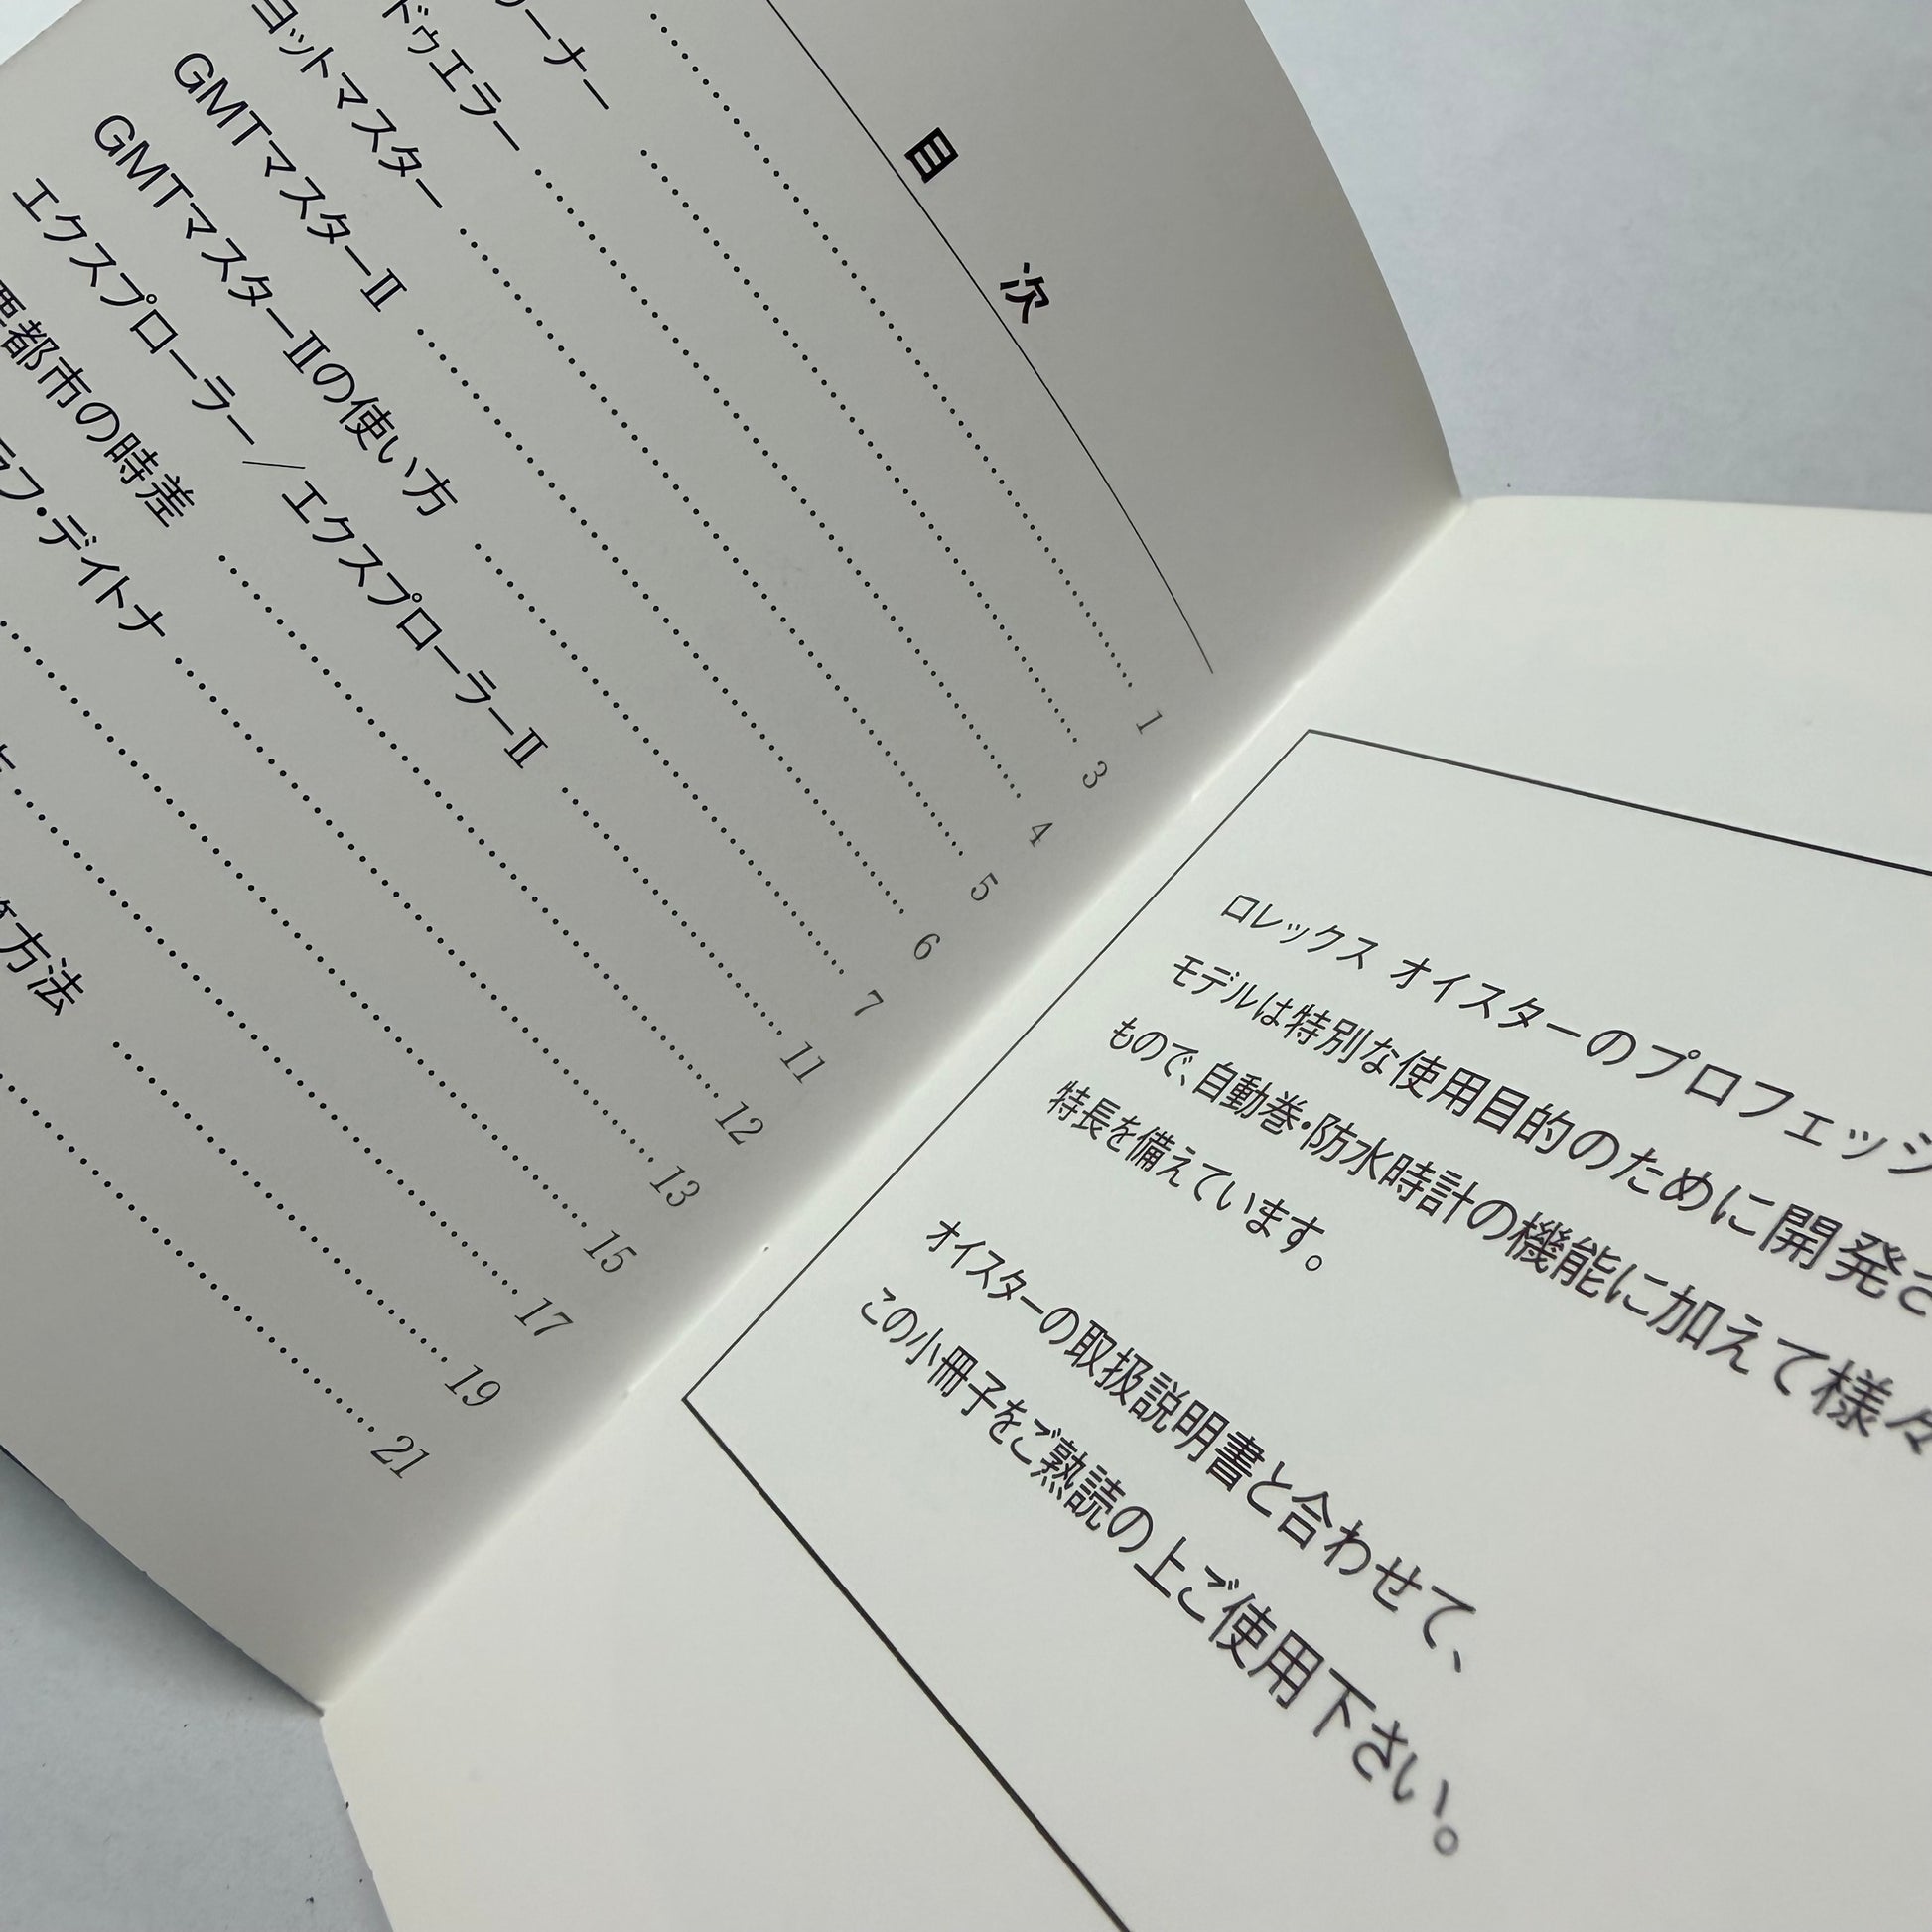 目 次
1
ーナー 3
ドゥエラー 4
ヨットマスター 5
GMTマスターⅡ 6
GMTマスターⅡの使い方 7
エクスプローラー／エクスプローラーⅡ 11
要都市の時差 12
ラフ・デイトナ 13
15
17
方法 19
21
ロレックス オイスターのプロフェッシ
モデルは特別な使用目的のために開発さ
もので、自動巻・防水時計の機能に加えて様々
特長を備えています。
オイスターの取扱説明書と合わせて、
この小冊子をご熟読の上ご使用下さい。